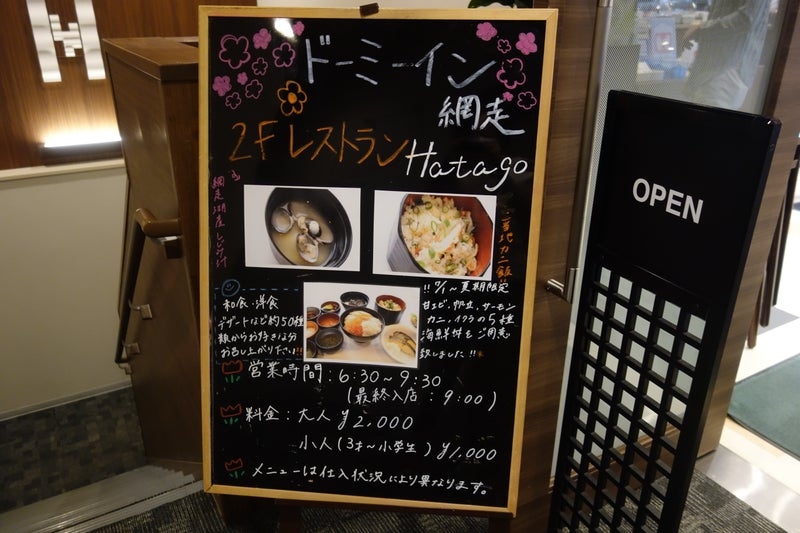 ドーミーイン
網走
2Fレストラン Hatago
網走湖産しじみ汁
ご当地カニ飯
和食・洋食
デザートなど約50種
類からお好きな分
お召し上がり下さい!!
!! 9/1~夏期限定
甘エビ、帆立、サーモン
カニ、イクラの5種
海鮮丼をご用意
致しました!!
営業時間:6:30~9:30
(最終入店:9:00)
料金:大人 ¥2,000
小人(3才~小学生)¥1,000
メニューは仕入状況により異なります。
OPEN